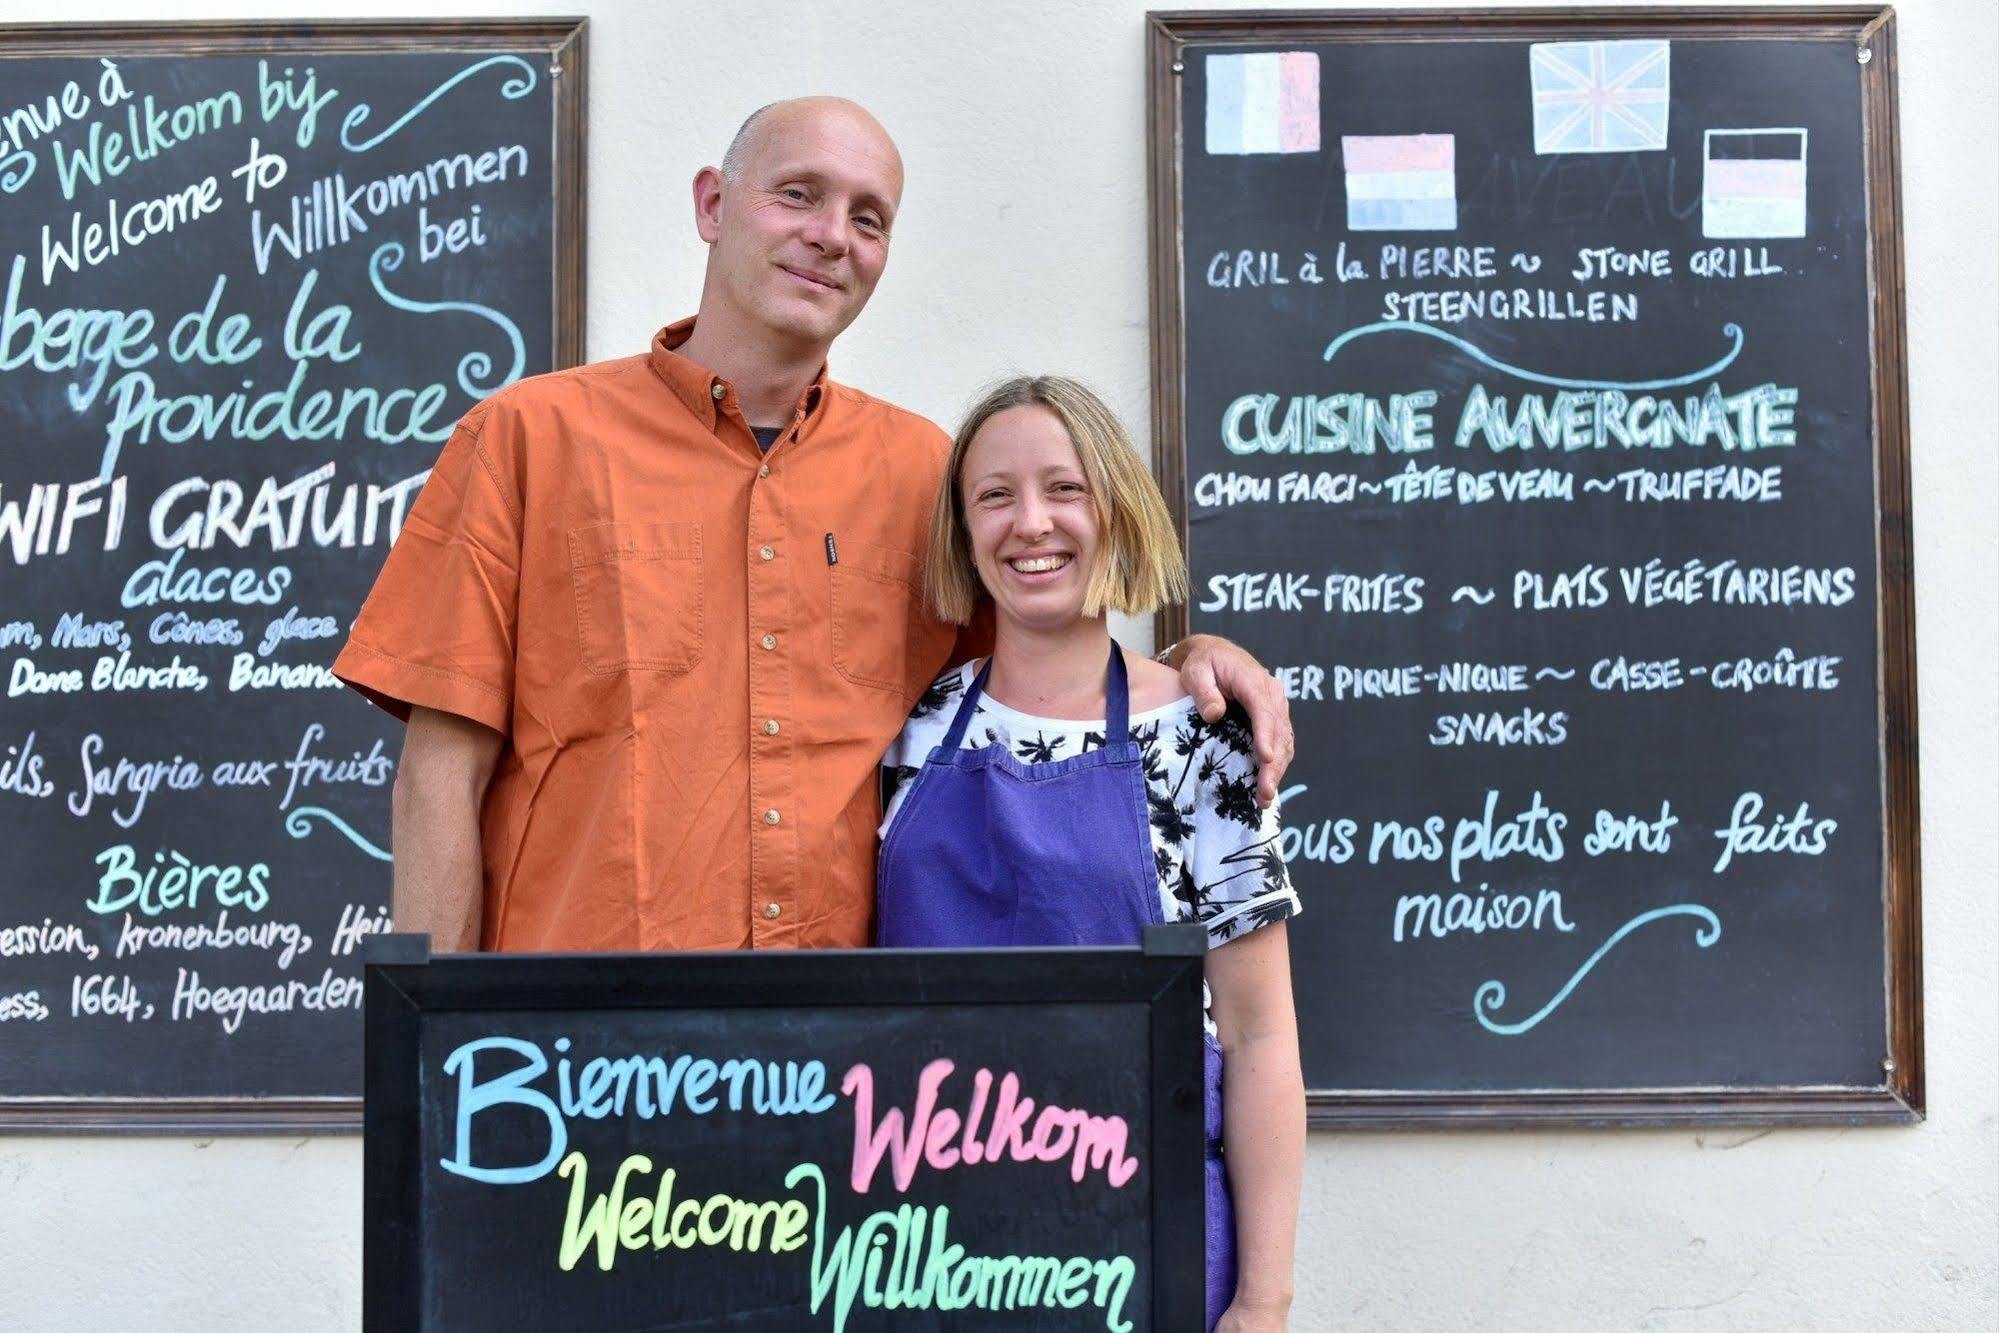 Welkom bij
Welcome to
Willkommen
bei
de la
Providence
WIFI GRATUIT
Glaces
Mars, Cônes, glace
Dame Blanche,
Sangria aux fruits
Bières
kronenbourg,
1664, Hoegaarden
GRIL à la PIERRE ~ STONE GRILL
STEENGRILLEN
CUISINE AUVERGNATE
CHOU FARCI ~ TÊTE DE VEAU ~ TRUFFADE
STEAK-FRITES ~ PLATS VÉGÉTARIENS
PIQUE-NIQUE ~ CASSE-CROÛTE
SNACKS
Tous nos plats sont faits
maison
Bienvenue Welkom
Welcome Willkommen